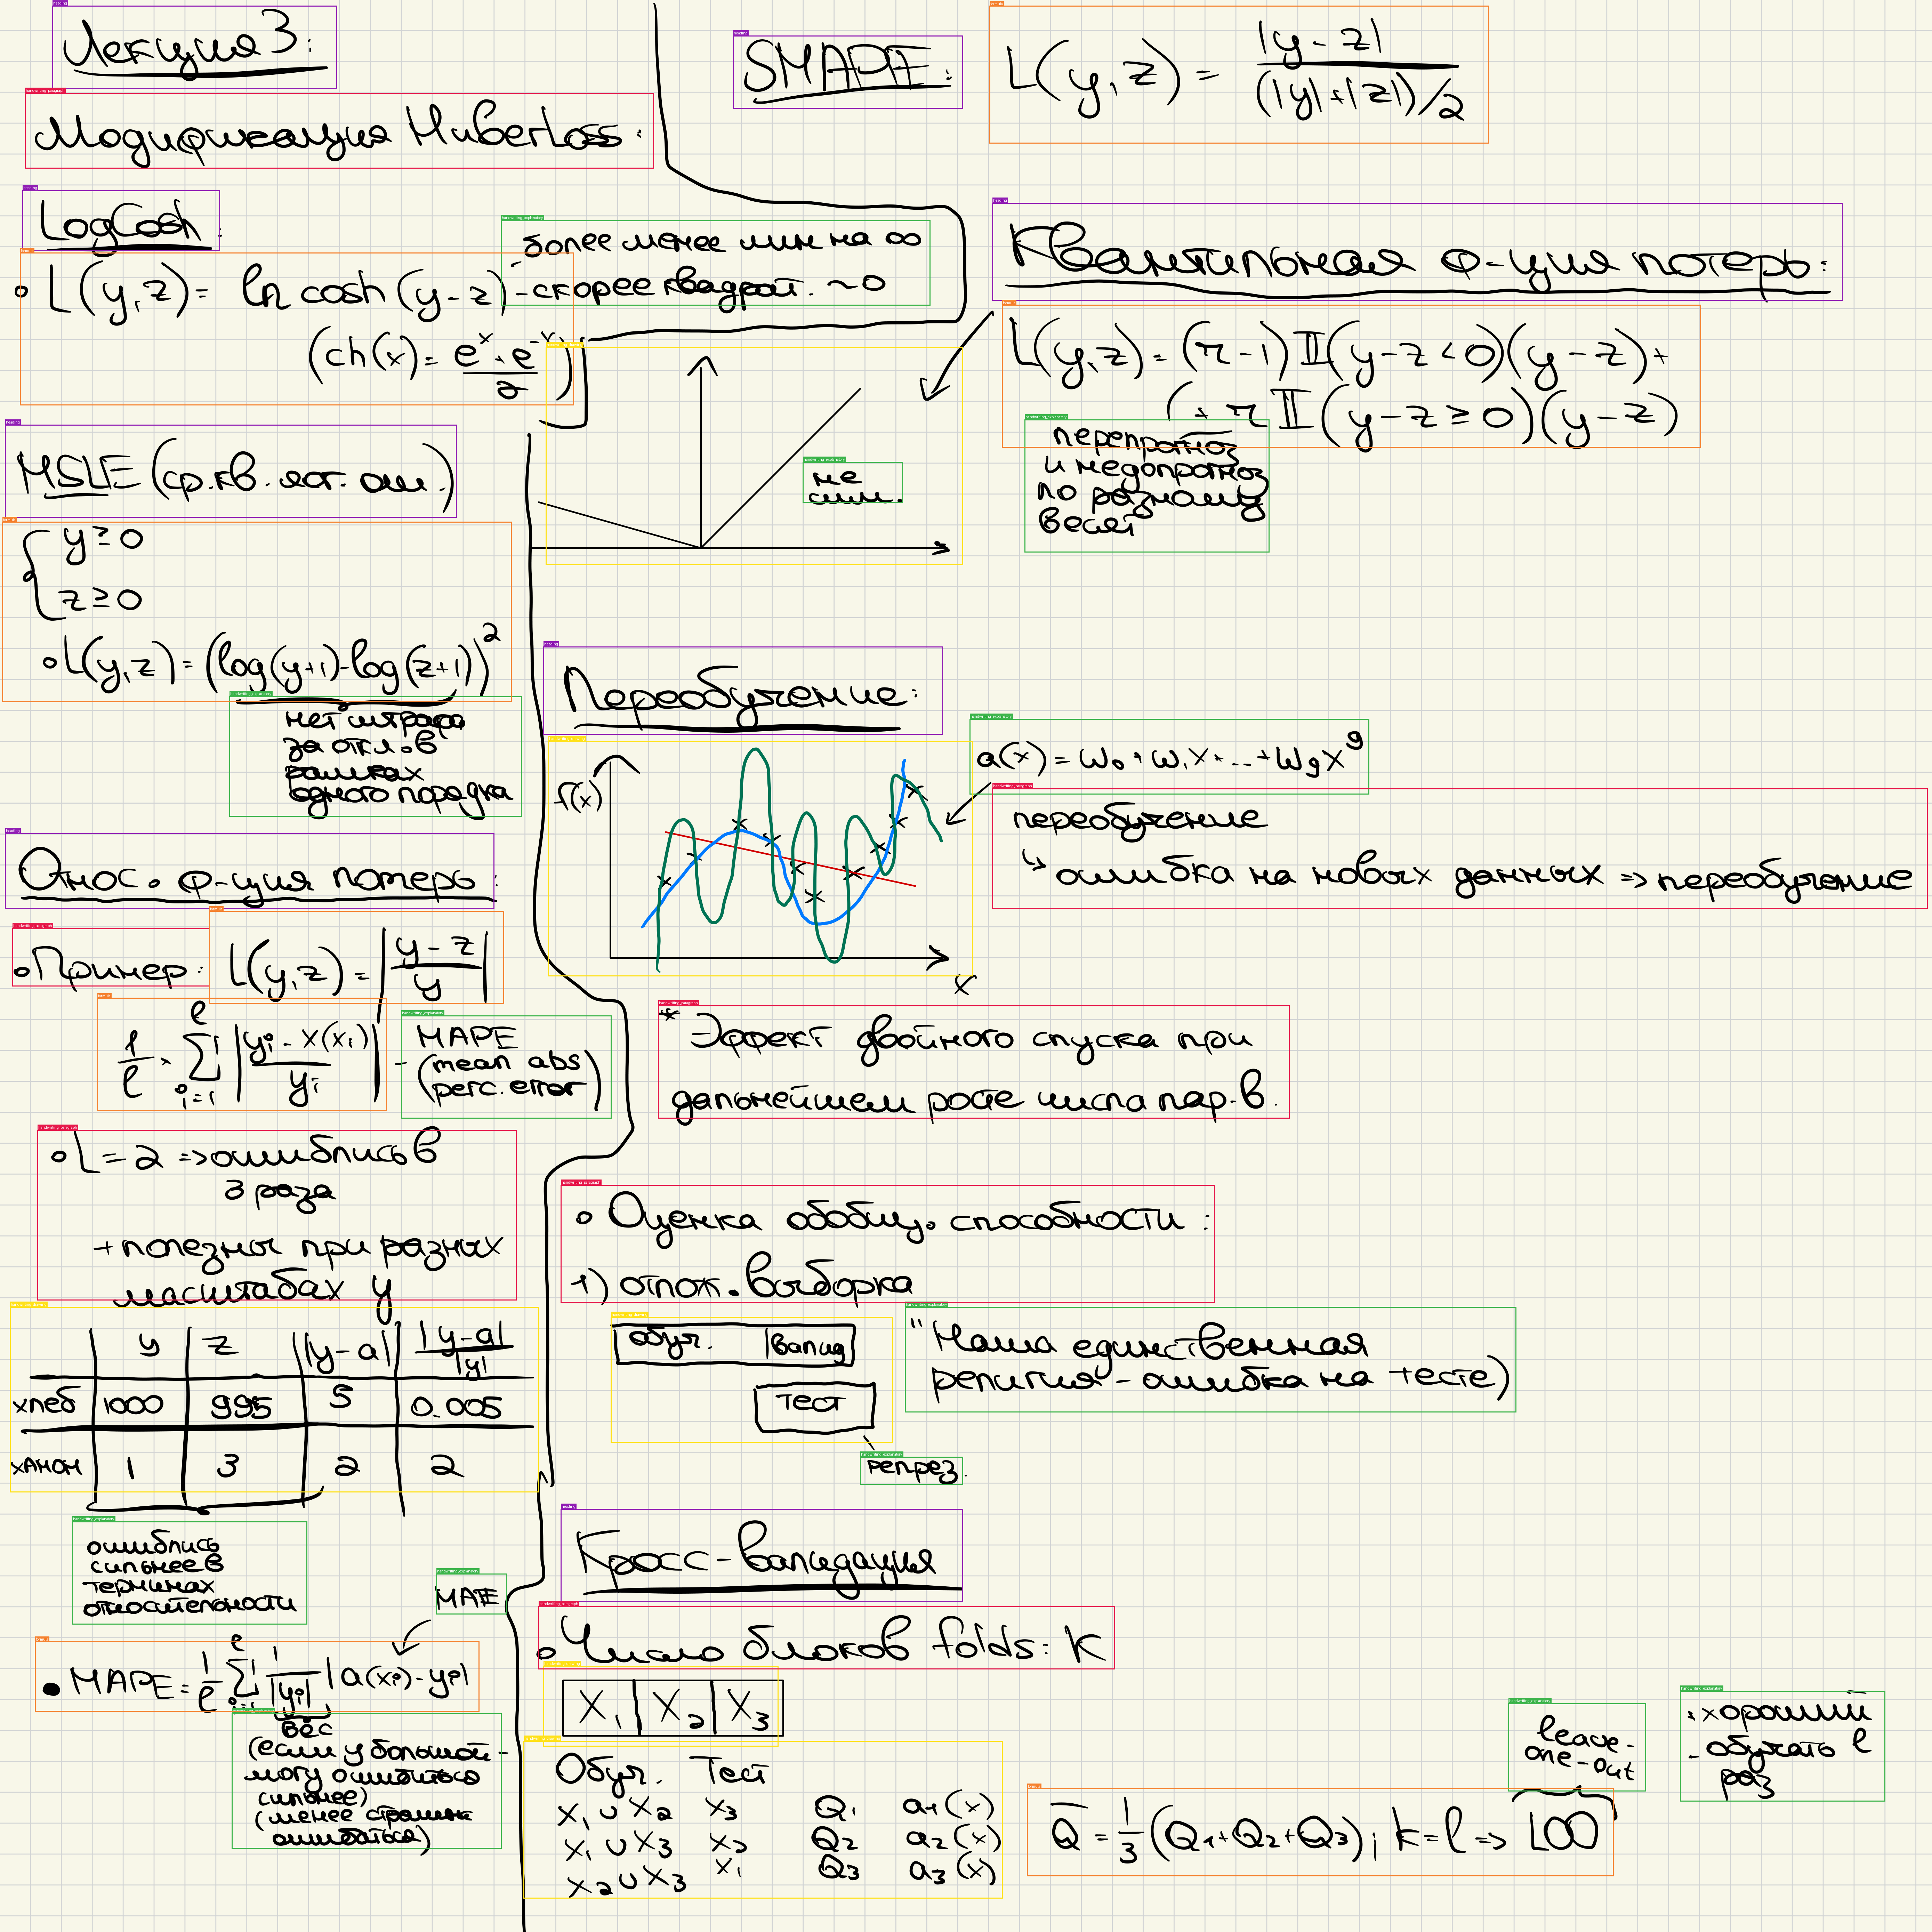 Лекция 3:
Модификация HuberLoss:
LogCosh:
более менее лин на ∞
L(y,z) = ln cosh(y-z) - скорее квадрат. ~0
(ch(x) = (e^x + e^-x)/2)
MSLE (ср.кв. лог. ош.)
y ≥ 0
z ≥ 0
L(y,z) = (log(y+1) - log(z+1))^2
нет штрафа
за откл. в
рамках
одного порядка
Относ. ф-ция потерь:
Пример: L(y,z) = |(y - z)/y|
1/ℓ · Σ_{i=1}^ℓ |(y_i - x(x_i))/y_i| - MAPE
(mean abs
perc. error)
L = 2 => ошиблись в
3 раза
+ полезны при разных
масштабах y
y z |y-a| |y-a|/|y|
хлеб 1000 995 5 0.005
хАмон 1 3 2 2
ошиблись
сильнее в
терминах
относительности
MAE
MAPE = 1/ℓ Σ_{i=1}^ℓ 1/|y_i| |a(x_i) - y_i|
вес
(если y большой -
могу ошибиться
сильнее)
(менее страшно
ошибаться)
SMAPE:
L(y,z) = |y - z| / ((|y|+|z|)/2)
Квантильная ф-ция потерь:
L(y,z) = (τ-1) 𝕀(y-z<0)(y-z) +
+ τ 𝕀(y-z ≥ 0)(y-z)
перепрогноз
и недопрогноз
по разному
весят
не
сим.
Переобучение:
f(x)
x
a(x) = w₀ + w₁x + ... + w₉x^9
переобучение
↳ ошибка на новых данных => переобучение
* Эффект двойного спуска при
дальнейшем росте числа пар-в.
Оценка обобщ. способности:
1) отлож. выборка
обуч. | валид
тест
репрез.
"Наша единственная
религия - ошибка на тесте)
Кросс-валидация
Число блоков folds: K
X₁ | X₂ | X₃
Обуч. Тест
X₁ ∪ X₂ X₃ Q₁ a₁(x)
X₁ ∪ X₃ X₂ Q₂ a₂(x)
X₂ ∪ X₃ X₁ Q₃ a₃(x)
Q̄ = 1/3 (Q₁+Q₂+Q₃); k = ℓ => LOO
leave-
one-out
+ хороший
- обучать ℓ
раз